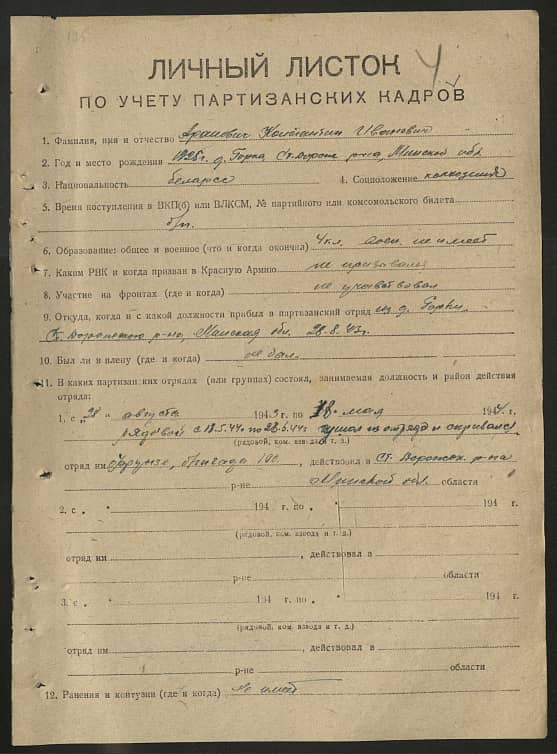 195
ЛИЧНЫЙ ЛИСТОК
Ч
ПО УЧЕТУ ПАРТИЗАНСКИХ КАДРОВ
1. Фамилия, имя и отчество Арапович Константин Иванович
2. Год и место рождения 1925г. д. Горки Ст. Дорож. р-на, Минской обл.
3. Национальность беларус 4. Соцположение колхозник
5. Время поступления в ВКП(б) или ВЛКСМ, № партийного или комсомольского билета
б/п.
6. Образование: общее и военное (что и когда окончил) 4 кл. воен. не имеет
7. Каким РВК и когда призван в Красную Армию не призывался
8. Участие на фронтах (где и когда) не участвовал
9. Откуда, когда и с какой должности прибыл в партизанский отряд из д. Горки,
Ст. Дорожского р-на, Минская обл. 28.8.43г.
10. Был ли в плену (где и когда) не был.
11. В каких партизанских отрядах (или группах) состоял, занимаемая должность и район действия
отряда:
1. с „28" августа 1943 г. по мая 1944 г.
рядовой с 18.5.44г. по 28.5.44г. ушел из отряда и скрывался
(рядовой, ком. взвода и т. д.)
отряд им Фрунзе, бригада 100, действовал в Ст. Дорожск. р-на
р-не Минской обл. области
2. с „ " 194 г. по „ " 194 г.
(рядовой, ком. взвода и т. д.)
отряд им , действовал в
р-не области
3. с „ " 194 г. по „ " 194 г.
(рядовой, ком. взвода и т. д.)
отряд им , действовал в
р-не области
12. Ранения и контузии (где и когда) Не имеет